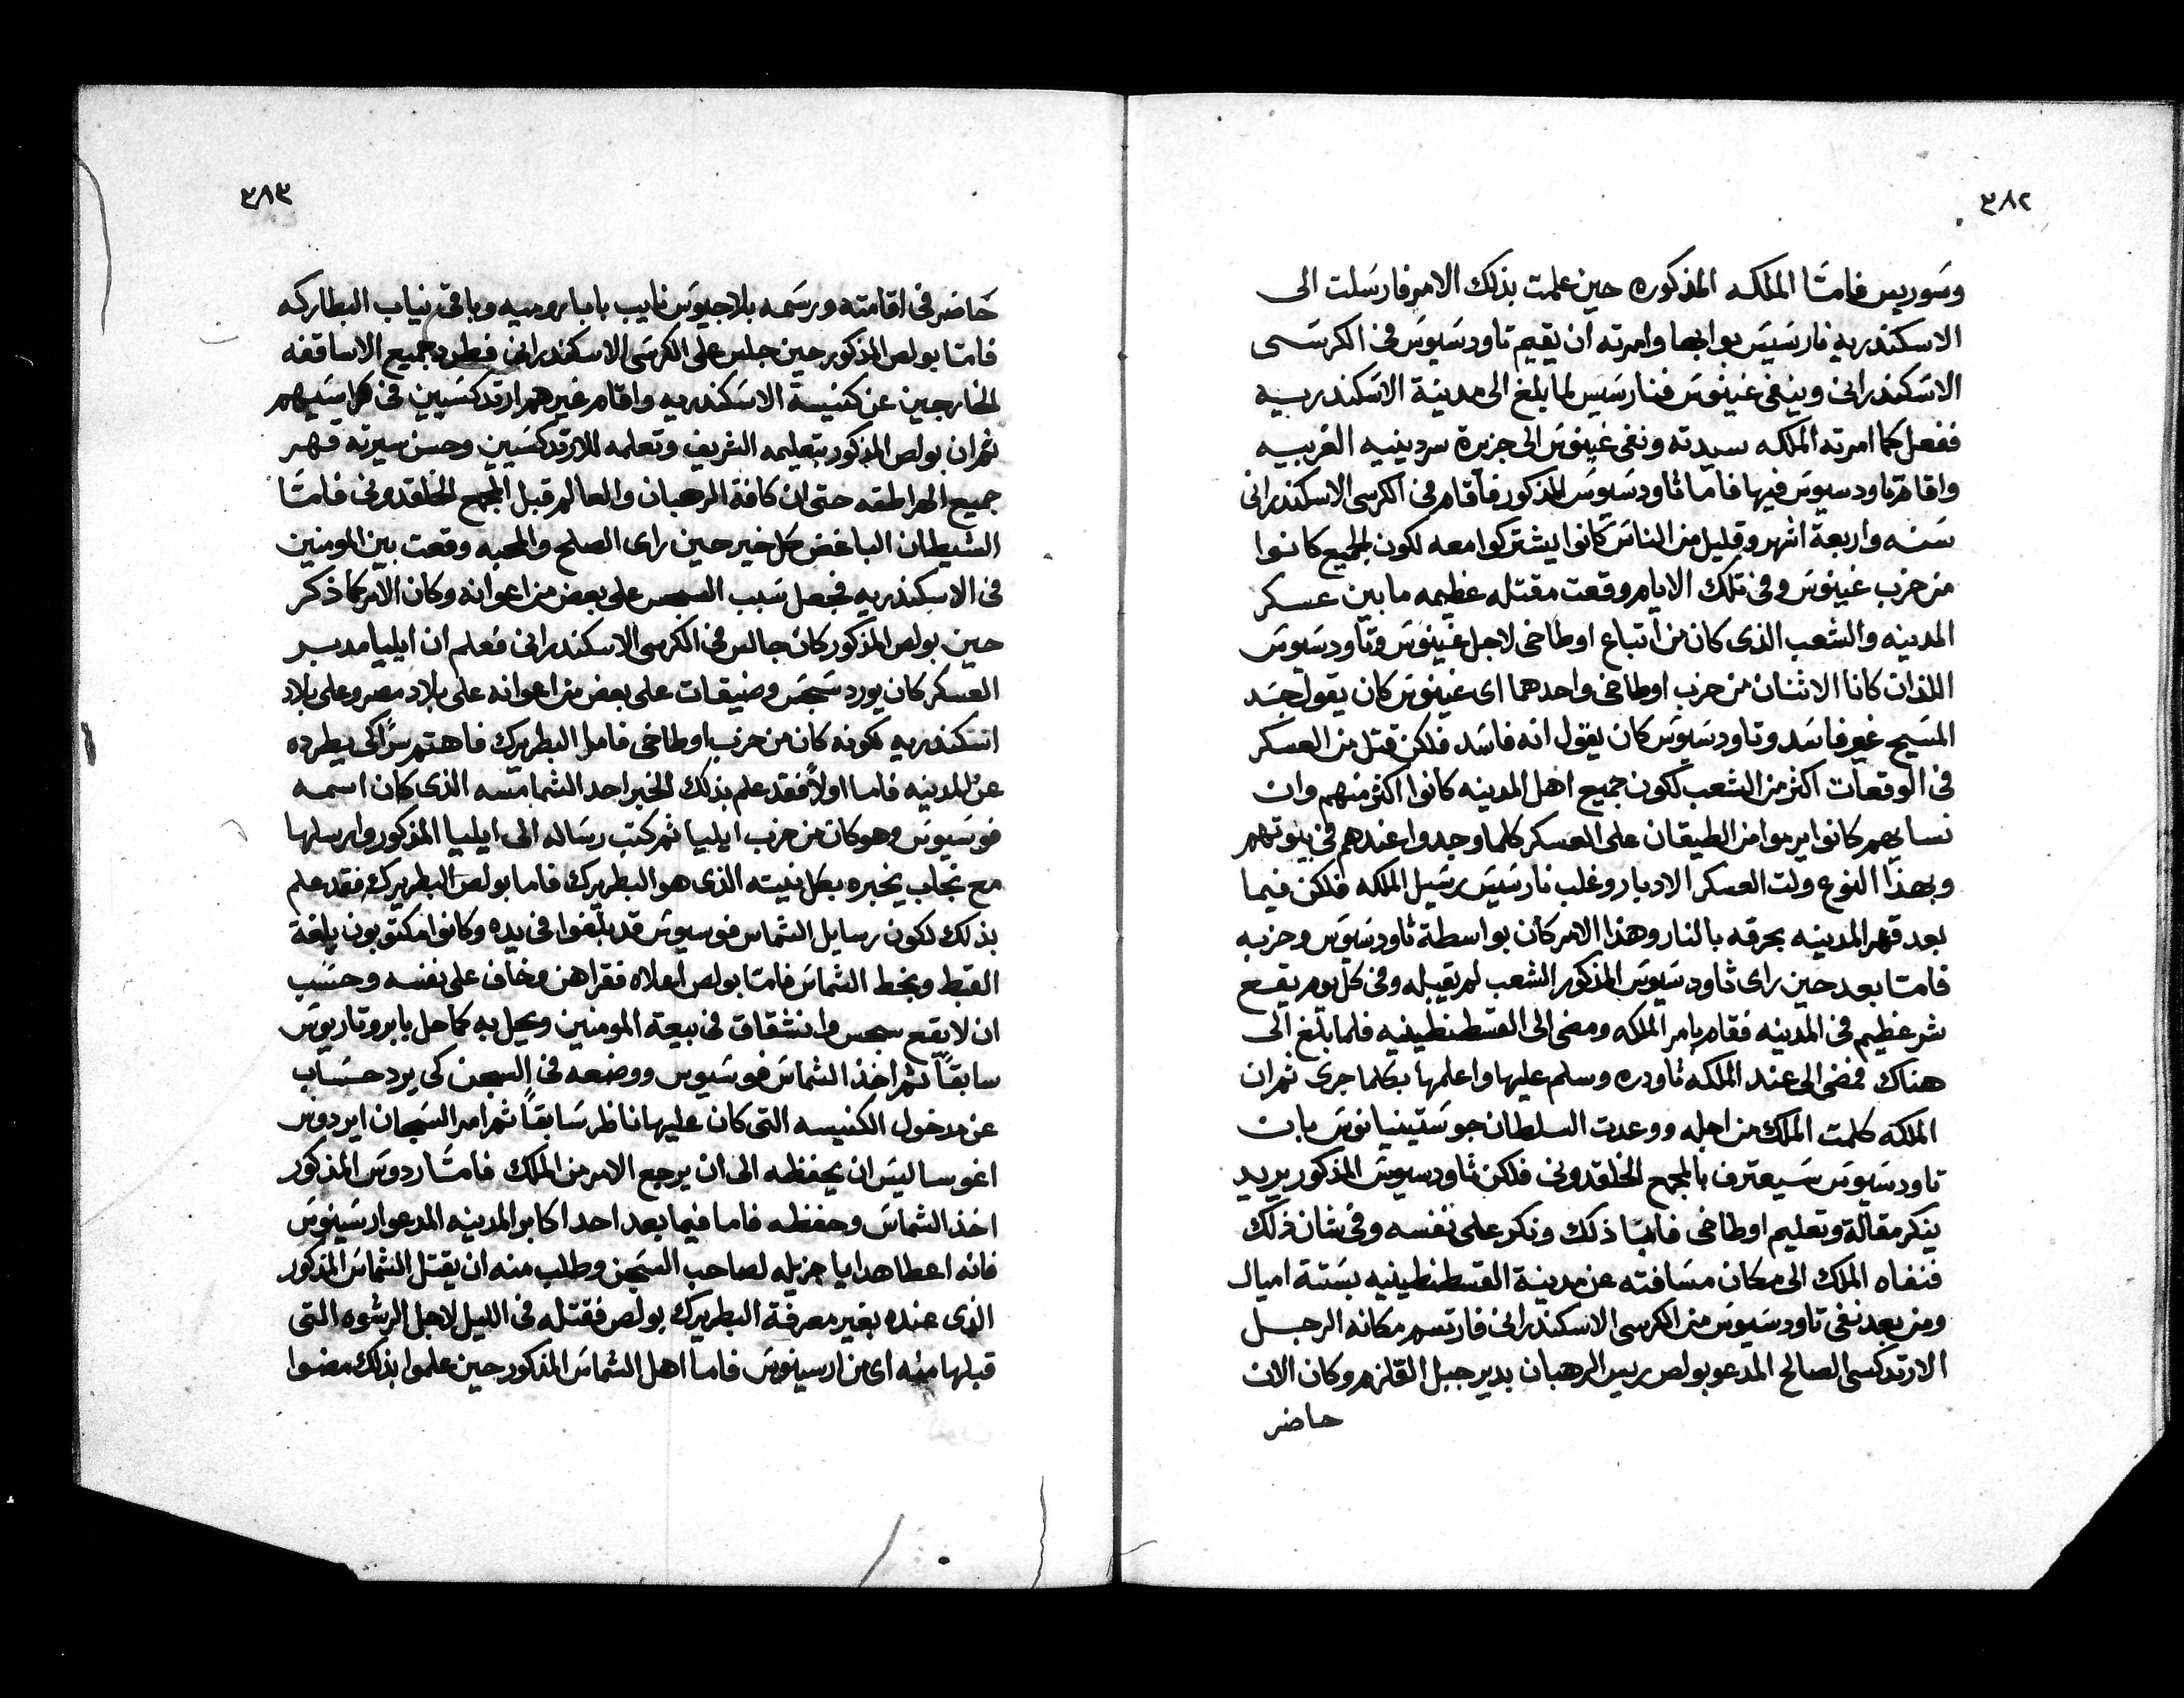 ٣٨٢
وسوريس فامّا الملكه المذكوره حين علمت بذلك الامر فارسلت الى
الاسكندريه نارسيس بوابها وامرته ان يقيم تاودسيوس في الكرسى
الاسكندراني وينفي غينوس فنارسيس لما بلغ الى مدينة الاسكندريه
ففعل كما امرته الملكه سيدته ونفى غينوس الى جزيرة سردينيه الغربيه
واقام تاودسيوس فيها فاما ثاودسيوس المذكور فاقام في الكرسي الاسكندراني
سنه واربعة اشهر وقليل من الناس كانوا يشتركوا معه لكون الجميع كانوا
من حزب غينوس وفي تلك الايام وقعت مقتله عظيمه ما بين عسكر
المدينه والشعب الذي كان من اتباع اوطاخي لاجل غينوس وثاودسيوس
اللذان كانا الاثنان من حزب اوطاخي واحدهما اى غينوس كان يقول جسد
المسيح غير فاسد وتاودسيوس كان يقول انه فاسد فلكن قتل من العسكر
في الوقعات اكثر من الشعب لكون جميع اهل المدينه كانوا اكثر منهم وان
نسايهم كانوا يرموا من الطيقان على العسكر كلما وجدوا عندهم في بيوتهم
وبهذا النوع ولت العسكر الادبار وغلب نارسيس رسيل الملكه فلكن فيما
بعد قهر المدينه بحرقه بالنار وهذا الامر كان بواسطة ثاودسيوس وحزبه
فامّا بعد حين راى ثاودسيوس المذكور الشعب لم تقبله وفي كل يوم يقع
شر عظيم في المدينه فقام بامر الملكه ومضى الى القسطنطينيه فلما بلغ الى
هناك فمضى الى عند الملكه ثاودره وسلم عليها واعلمها بكلما جرى ثم ان
الملكه كلمت الملك من اجله ووعدت السلطان جوستينيانوس بان
تاودسيوس سيعترف بالمجمع الخلقدوني فلكن ثاودسيوس المذكور يريد
ينكر مقالة وتعليم اوطاخي فابّا ذلك ونكر على نفسه وفي شان ذلك
فنفاه الملك الى مكان مسافته عن مدينة القسطنطينيه بستة اميال
ومن بعد نفي تاودسيوس من الكرسي الاسكندراني فارتسم مكانه الرجل
الارتدكسي الصالح المدعو بولص ريس الرهبان بدير جبل القلزم وكان الان
حاضر
٣٨٣
حاضر في اقامته ورسمه بلاجيوس نايب بابا روميه وباقي نياب البطاركه
فامّا بولص المذكور حين جلس على الكرسي الاسكندراني فطرد جميع الاساقفه
الخارجين عن كنيسة الاسكندريه واقام غيرهم ارتدكسيين في كراسيهم
ثم ان بولص المذكور بتعليمه الشريف وتعلمه للارتدكسيين وحسن سيرته قهر
جميع الهراطقه حتى ان كافة الرهبان والعالم قبل المجمع الخلقدوني فامّا
الشيطان الباغض كل خير حين راى الصلح والمحبه وقعت بين المومنين
في الاسكندريه فجعل سبب السجس على بعض من اعوانه وكان الامر كما ذكر
حين بولص المذكور كان جالس في الكرسي الاسكندراني فعلم ان ايليا مدبر
العسكر كان يورد سجس وضيقات على بعض من اعوانه على بلاد مصر وعلى بلاد
اسكندريه لكونه كان من حزب اوطاخي فاما البطريرك فاهتم سرًا كي يطرده
عن المدينه فاما اولاً فقد علم بذلك الخبر احد الشمامسه الذي كان اسمه
فوسيوس وهو كان من حزب ايليا ثم كتب رساله الى ايليا المذكور وارسلها
مع نجاب يخبره بكل نيته الذي هو البطريرك فاما بولص البطريرك فقد علم
بذلك لكون رسايل الشماس فوسيوس قد بلغوا في يده وكانوا مكتوبون بلغة
القبط وبخط الشماس فامّا بولص اعلاه فقراهن وخاف على نفسه وحسب
ان لا يقع سجس وانشقاق في بيعة المومنين ويحل به كما حل بابروتاريوس
سابقاً ثم اخذ الشماس فوسيوس ووضعه في السجن كي يرد حساب
عن مدخول الكنيسه التي كان عليها ناظر سابقاً ثم امر السجان ايردوس
اغوساليس ان يحفظه الى ان يرجع الامر من الملك فامّا ردوس المذكور
اخذ الشماس وحفظه فاما فيما بعد احد اكابر المدينه المدعو ارسينوس
فانه اعطا هدايا جزيله لصاحب السجن وطلب منه ان يقتل الشماس المذكور
الذي عنده بغير معرفة البطريرك بولص فقتله في الليل لاجل الرشوه التي
قبلها منه اى من ارسينوس فاما اهل الشماس المذكور حين علموا بذلك مضوا